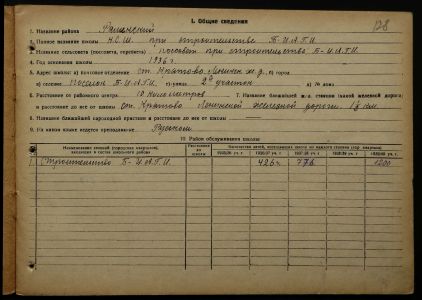 128
I. Общие сведения
1. Название района Раменский
2. Полное название школы Н.С.Ш. при строительстве Б-ЦАГИ
3. Название сельсовета (поссовета, горсовета) Поссовет при строительстве Б-ЦАГИ.
4. Год основания школы 1936 г.
5. Адрес школы: а) почтовое отделение ст. Кратово Ленинск. ж. д. б) город
в) селение Поселок Б-ЦАГИ, г) улица 2й участок д) № дома
6. Расстояние от районного центра 10 километров 7. Название ближайшей ж.-д. станции (какой железной дороги)
и расстояние до нее от школы ст. Кратово Ленинской железной дороги. 1½ км.
8. Название ближайшей пароходной пристани и расстояние до нее от школы
9. На каком языке ведется преподавание Русском
10. Район обслуживания школы
Название селений (городских кварталов), входящих в состав школьного района
Расстояние до школы
Количество детей, посещавших школу из каждого селения (гор. квартала)
1935/36 уч. г. 1936/37 уч. г. 1937/38 уч. г. 1938/39 уч. г.
1. Строительство Б-ЦАГИ. 426 ч. 776 1200